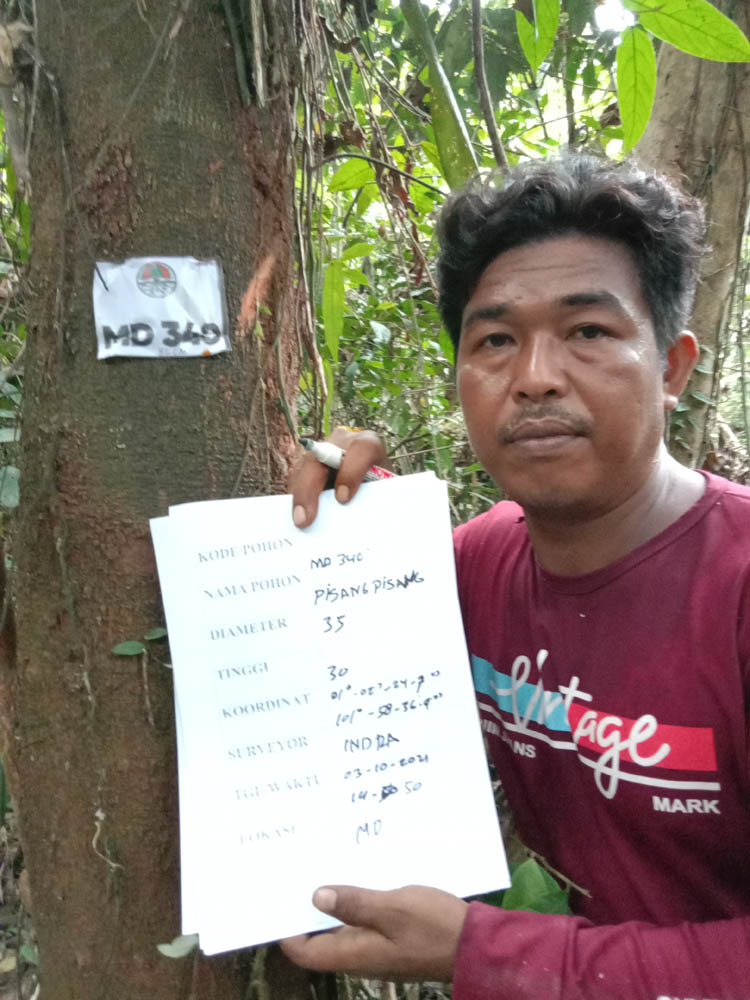 MD 340
KODE POHON MD 340
NAMA POHON PISANG PISANG
DIAMETER 35
TINGGI 30
KOORDINAT
101°-58-36-9"
SURVEYOR INDRA
TGL WAKTU 03-10-2021
14-50
LOKASI MD
Vintage
JEANS
MARK